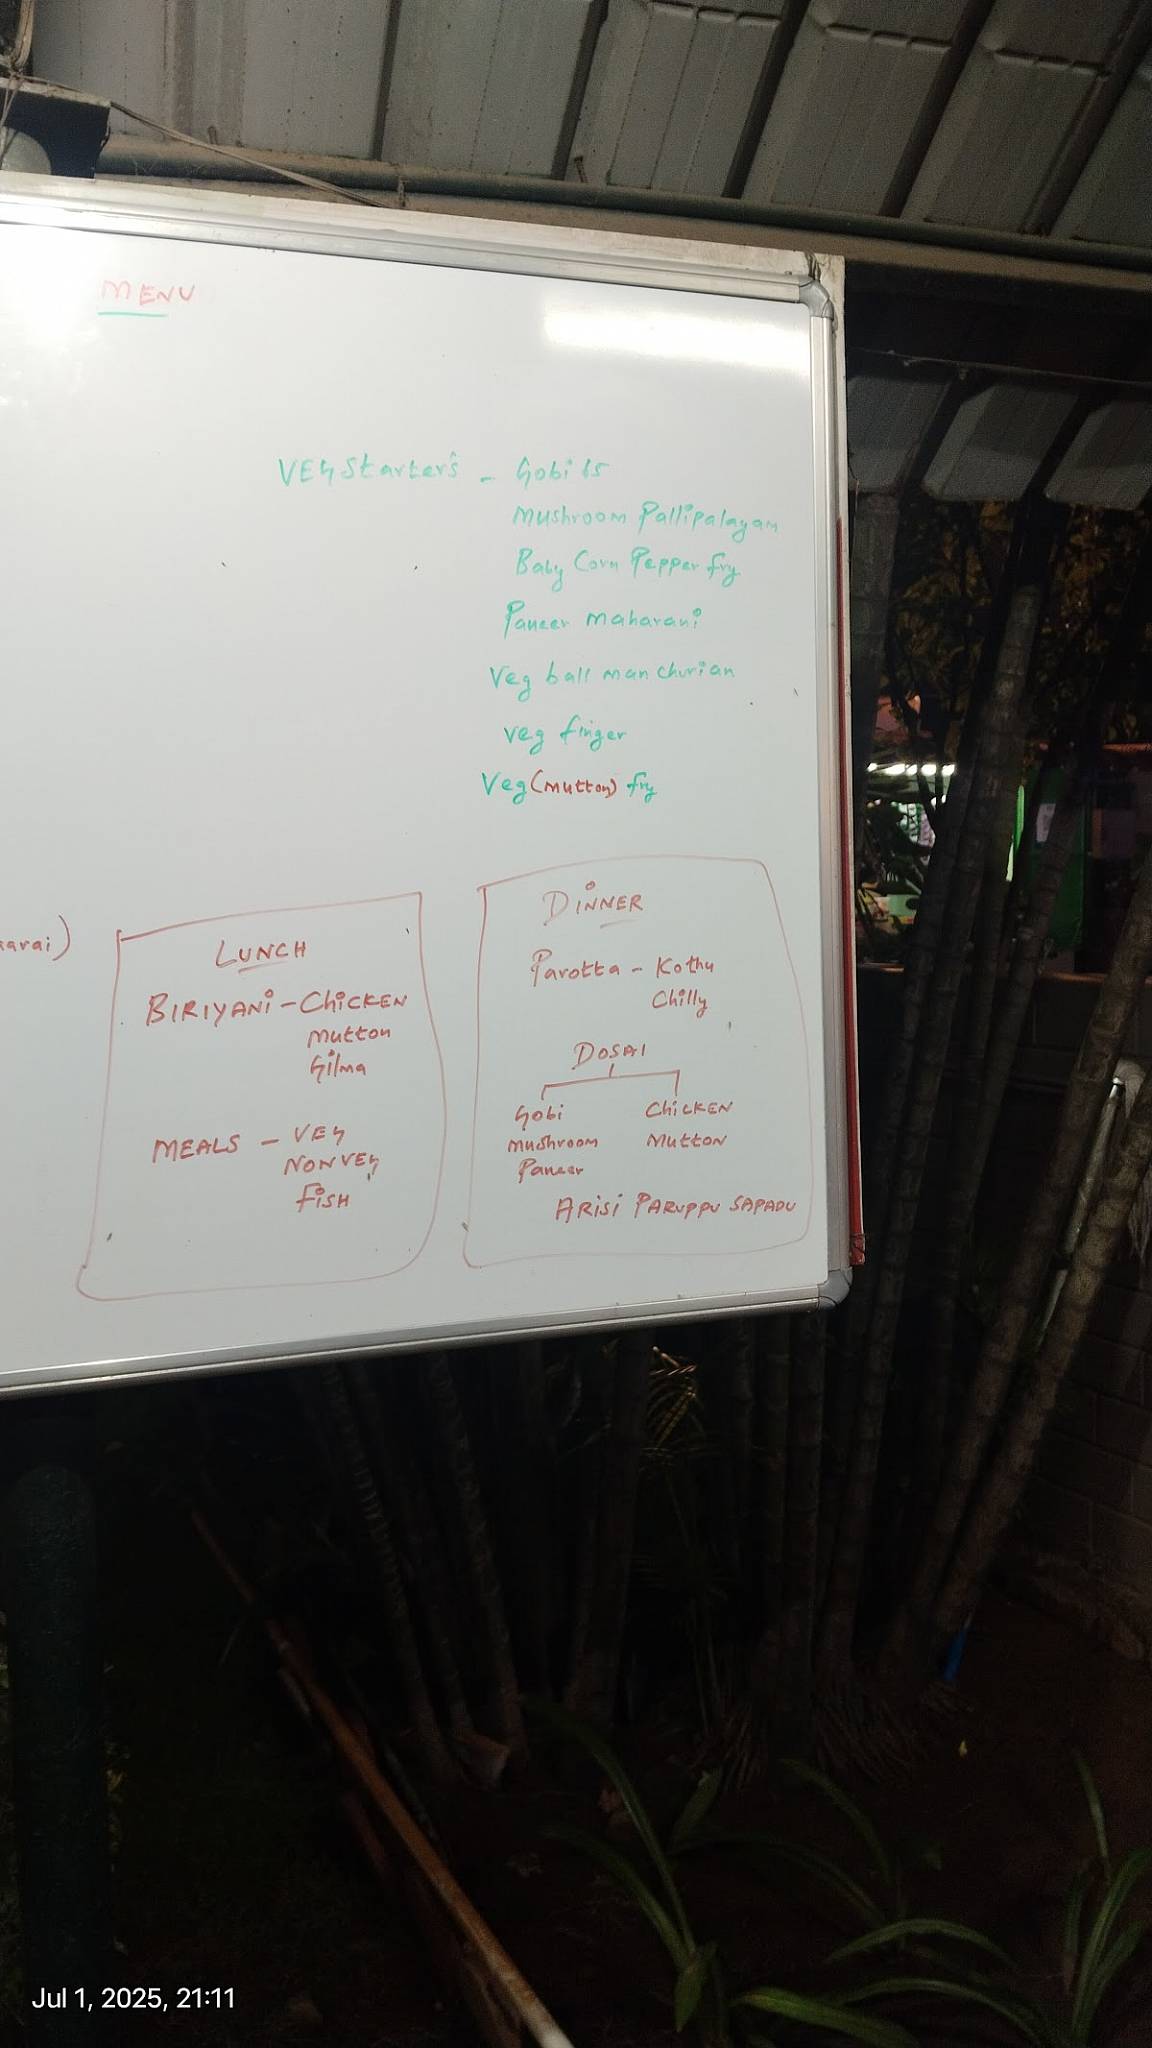 MENU
VEG Starter's - Gobi 65
Mushroom Pallipalayam
Baby Corn Pepper fry
Paneer maharani
Veg ball manchurian
veg finger
Veg (mutton) fry
LUNCH
BIRIYANI - CHICKEN
mutton
Gilma
MEALS - VEG
NONVEG
FISH
DINNER
Parotta - Kothu
Chilly
DOSAI
Gobi CHICKEN
mushroom Mutton
Paneer
ARISI PARUPPU SAPADU
Jul 1, 2025, 21:11